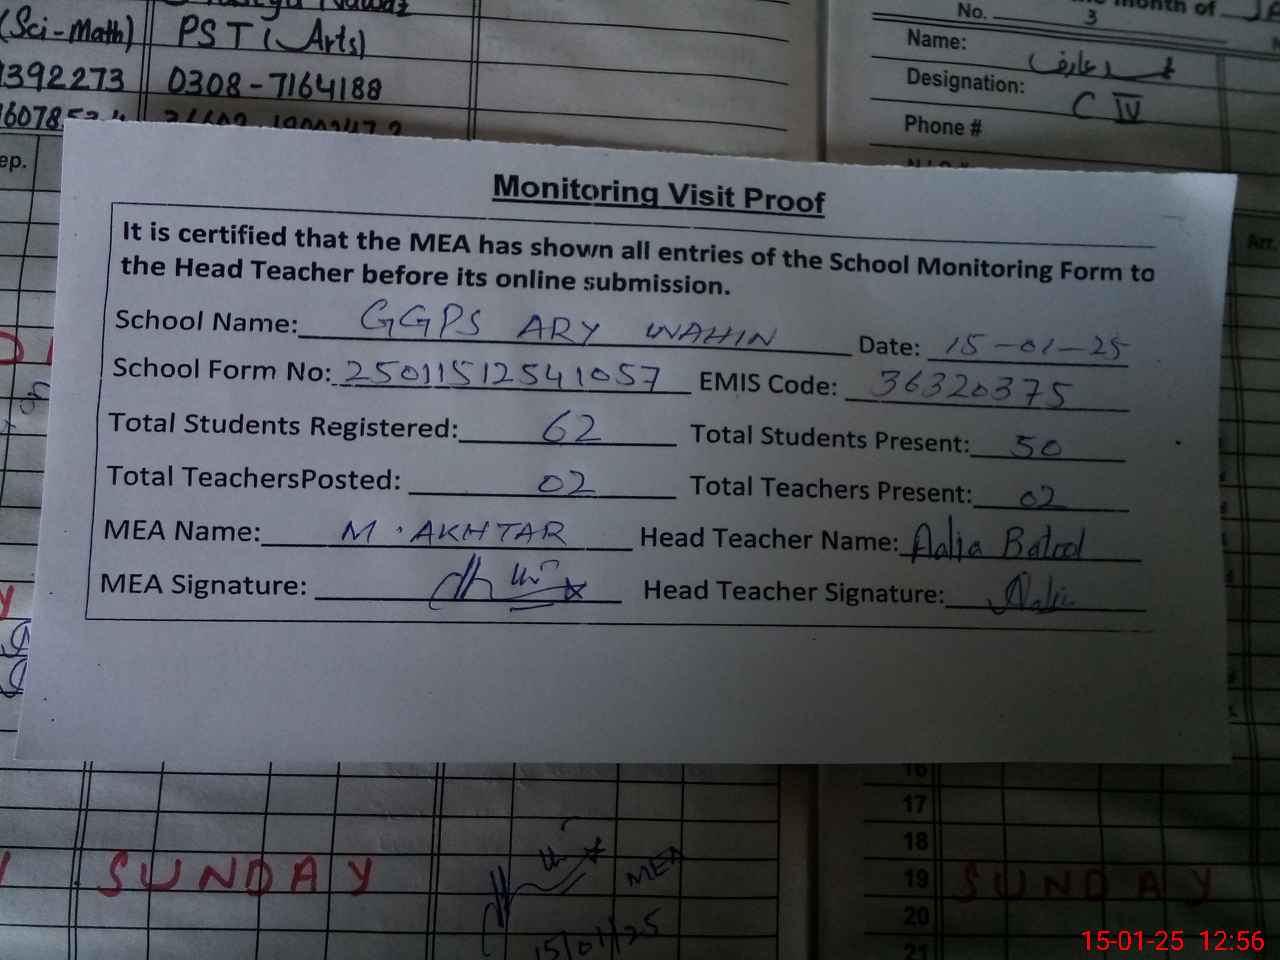 (Sci-Math) PST (Arts)
1392273 0308-7164188
No. 3
Name:
Designation: C IV
Phone #
ep.
Monitoring Visit Proof
It is certified that the MEA has shown all entries of the School Monitoring Form to
the Head Teacher before its online submission.
School Name: GGPS ARY WAHIN Date: 15-01-25
School Form No: 250115125541057 EMIS Code: 36320375
Total Students Registered: 62 Total Students Present: 50
Total TeachersPosted: 02 Total Teachers Present: 02
MEA Name: M. AKHTAR Head Teacher Name: Aalia Batool
MEA Signature: Head Teacher Signature: Aalia
Arr.
16
17
18
SUNDAY MEA 19 SUNDAY
20
15/01/25 21
15-01-25 12:56